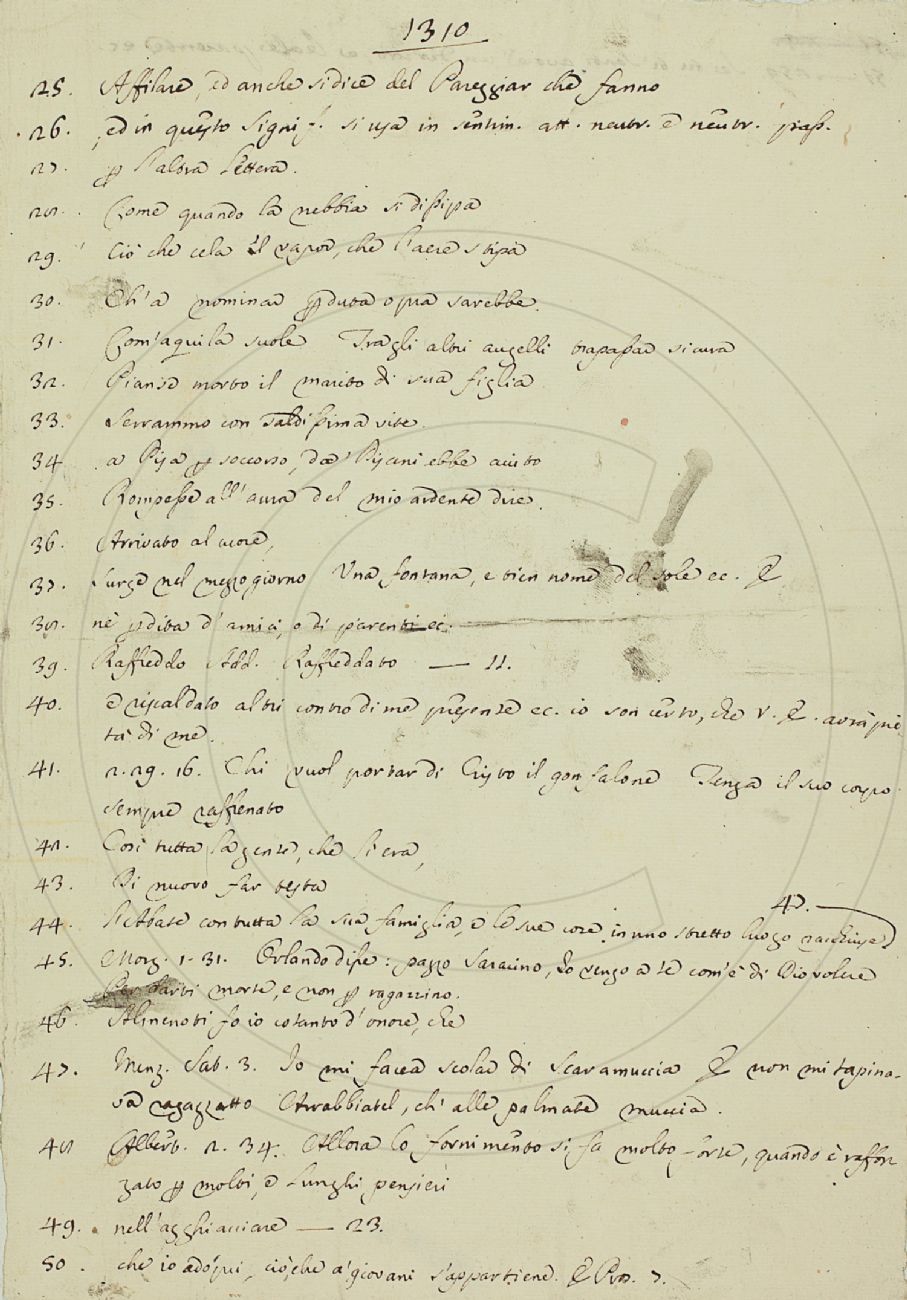 1310
25. Affilare, ed anche si dice del Pareggiar che fanno
26. , ed in questo signif. si usa in sentim. att. neutr. e neutr. pass.
27. p l'altra lettera.
28. Come quando la nebbia si dissipa
29. Ciò che cela il vapor, che l'aere stipa
30. Ch'a nominar pduta opra sarebbe.
31. Com'aquila suole Tra gli altri augelli trapassar sicura
32. Pianse morto il marito di sua figlia
33. Serrammo con saldissima vite.
34 . a Pisa p soccorso, da' Pisani ebbe aiuto
35. Rompesse all'aura del mio ardente dire.
36. Arrivato al cuore,
37. Surge nel mezzo giorno Una fontana, e tien nome del sole ec. E
38. nè pdita d'amici, o di parenti ec.
39. Raffreddo Add. Raffreddato — 11.
40. è riscaldato altri contro di me presente ec. io son certo, che V. E. avrà pie
tà di me.
41. 2. 29. 16. Chi vuol portar di Cristo il gonfalone Tenga il suo corpo
sempre raffrenato
42. Così tutta la gente, che lì era,
43. Di nuovo far testa
47.
44. L'Abate con tutta la sua famiglia, e le sue cose in uno stretto luogo racchiuse
45. Morg. 1. 31. Orlando disse: pazzo Saracino, Io vengo a te com'è di Dio volere
Per darti morte, e non p ragazzino.
46. Almen ti fo io cotanto d'onore, che
47. Menz. Sat. 3. Io mi facea scolar di Scaramuccia E non mi tapina-
va ragazzetto Arrabbiatel, ch'alle palmate muccia.
48 Albert. 2. 34. Allora lo fornimento si fa molto forte, quando è raffor
zato p molti, e lunghi pensieri
49. nell'agghiacciare — 23.
50. che io adopri, ciò, che a' giovani s'appartiene. E Pros. 7.